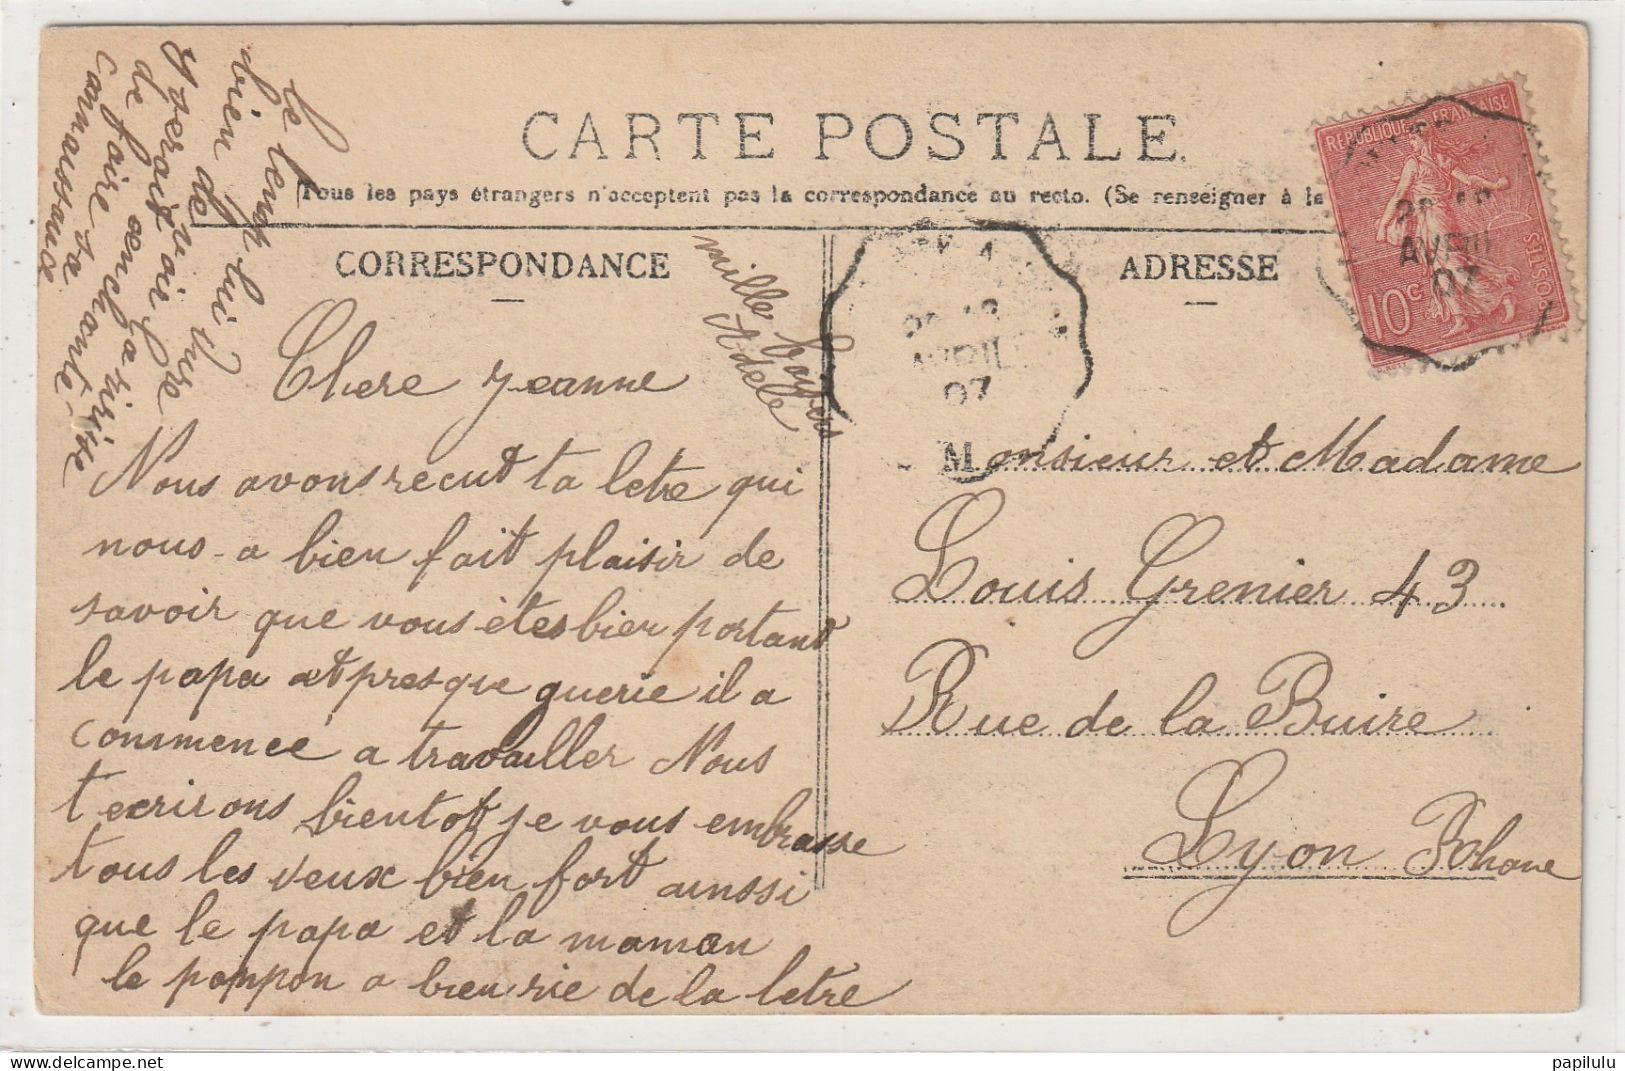 CARTE POSTALE
Tous les pays étrangers n'acceptent pas la correspondance au recto. (Se renseigner à la
CORRESPONDANCE
ADRESSE
REPUBLIQUE FRANÇAISE
POSTES
10c
AVRIL
07
AVRIL
07
Chere Jeanne
Nous avons recut ta letre qui
nous a bien fait plaisir de
savoir que vous étes bien portant
le papa et presque guerie il a
commencé a travailler Nous
t ecrirons bientot je vous embrasse
tous les deux bien fort ainssi
que le papa et la maman
le pompon a bien rie de la letre
le temp lui dure
bien de
de faire
ta
connaissance
mille baisers
Adele
Monsieur et Madame
Louis Grenier 43
Rue de la Buire
Lyon Rhone
papilulu